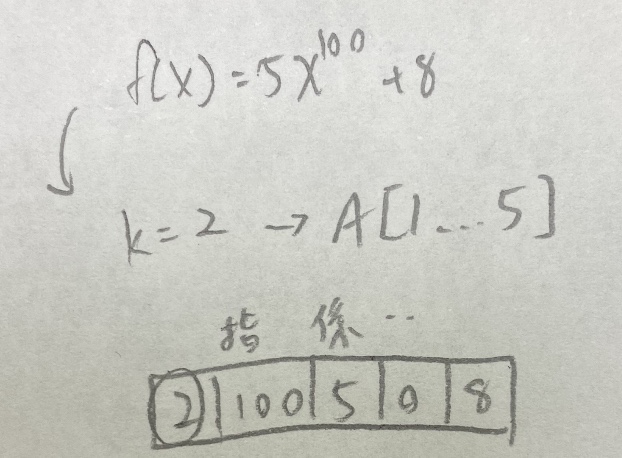 f(x)=5x¹⁰⁰+8
k=2→A[1...5]
指 係..
2 100 5 0 8